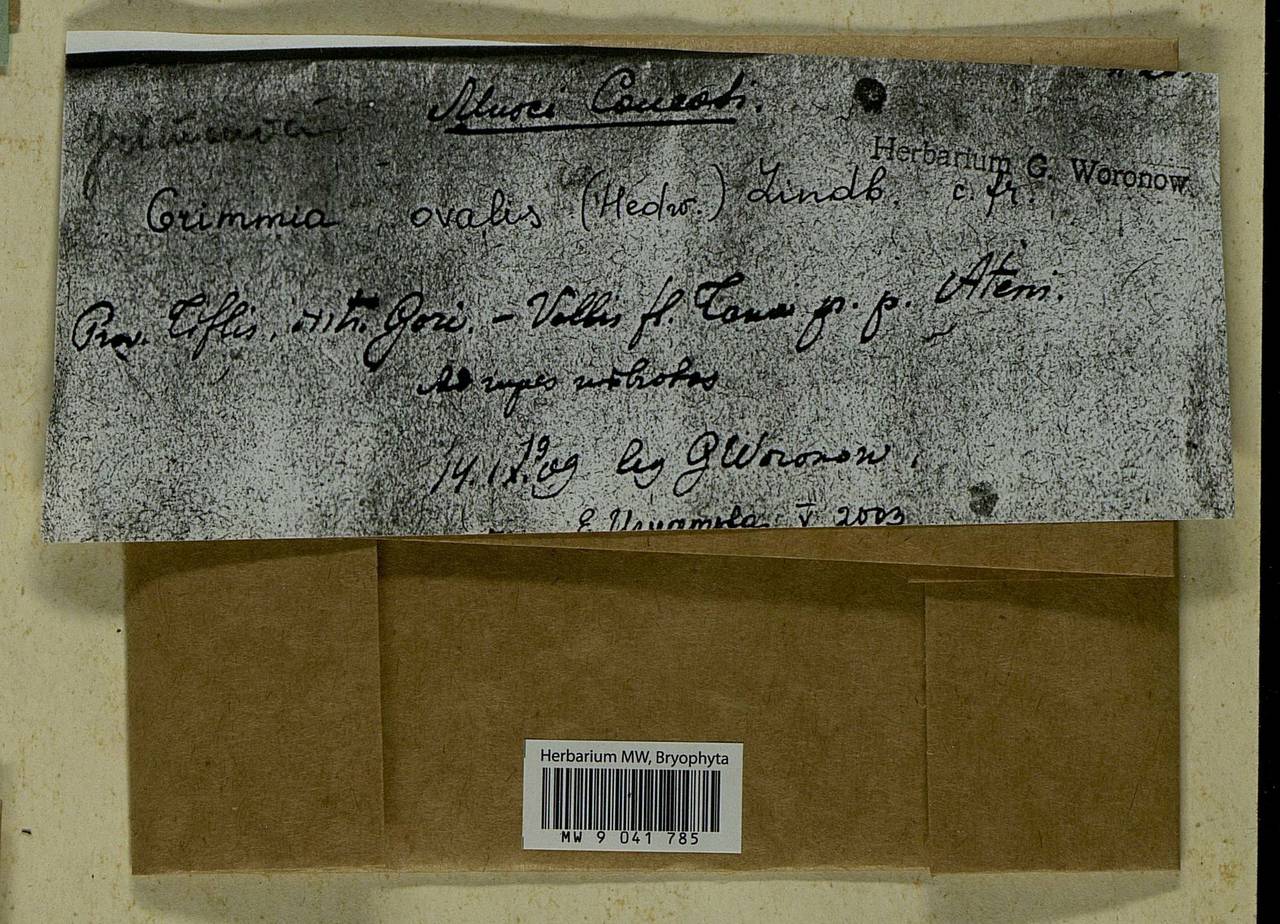 Musci Caucas.
Herbarium G. Woronow.
Grimmia ovalis (Hedw.) Lindb. c. fr.
Prov. Tiflis, distr. Gori. – Vallis fl. Tana pr. p. Ateni.
Ad rupes
14.IX.1909 leg GWoronow.
V 2003
Herbarium MW, Bryophyta
MW 9 041 785